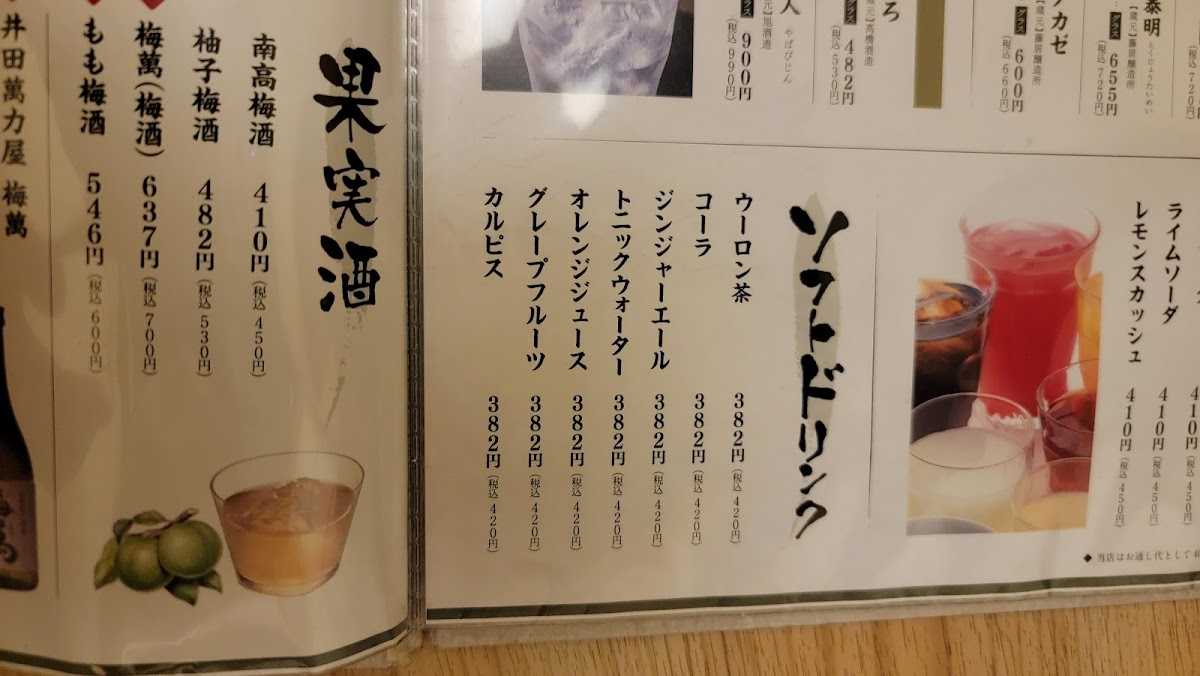 果実酒
南高梅酒 410円(税込 450円)
柚子梅酒 482円(税込 530円)
梅萬(梅酒) 637円(税込 700円)
もも梅酒 546円(税込 600円)
井田萬力屋 梅萬
(税込 720円)
泰明
とくじょうたいめい
【蔵元】藤居醸造所
グラス 655円
(税込 720円)
カゼ
【蔵元】藤居醸造所
グラス 600円
(税込 660円)
ろ
【蔵元】高橋酒造
グラス 482円
(税込 530円)
人
やばびじん
【蔵元】旭酒造
グラス 900円
(税込 990円)
410円(税込 450円)
ライムソーダ 410円(税込 450円)
レモンスカッシュ 410円(税込 450円)
◆当店はお通し代として
ソフトドリンク
ウーロン茶 382円(税込 420円)
コーラ 382円(税込 420円)
ジンジャーエール 382円(税込 420円)
トニックウォーター 382円(税込 420円)
オレンジジュース 382円(税込 420円)
グレープフルーツ 382円(税込 420円)
カルピス 382円(税込 420円)